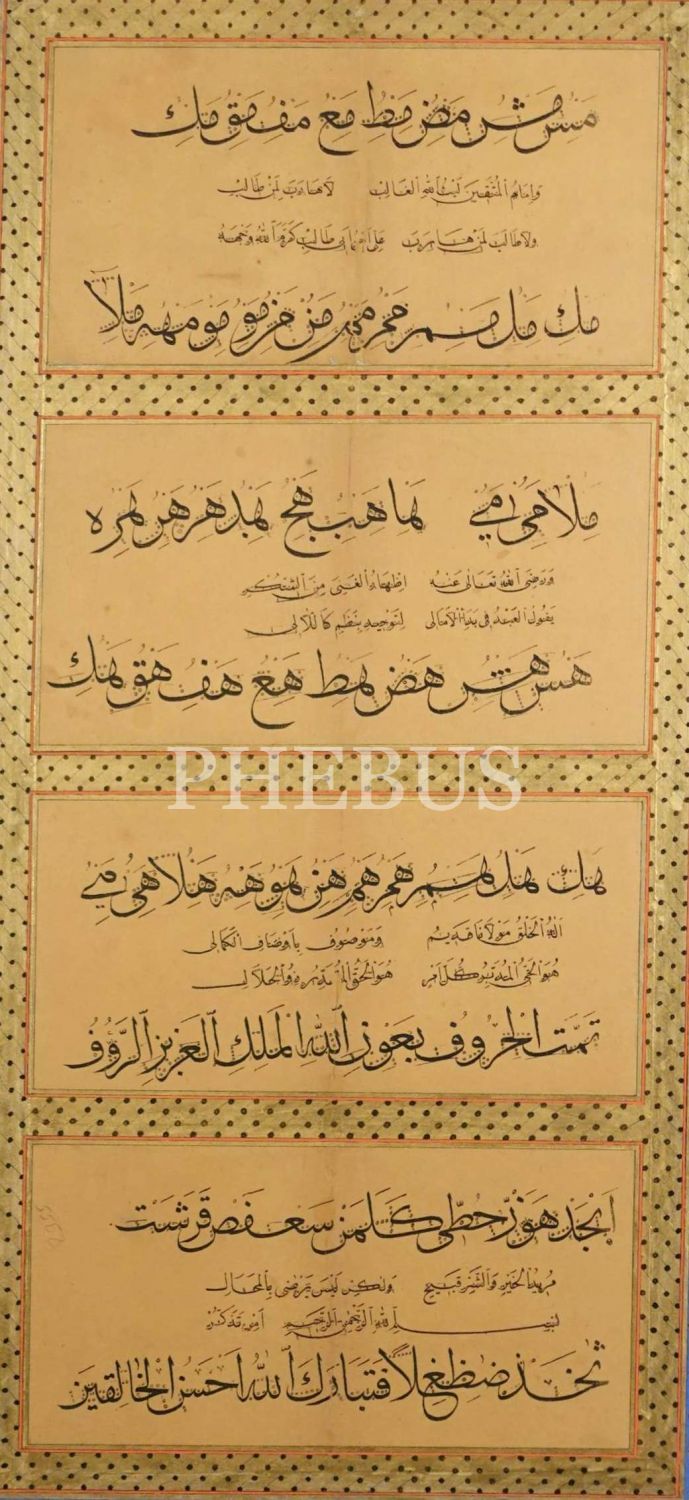 مس مش مص مط مع مف مق مك
وامام المتقين ليث الله الغالب لا هارب لمن طالب
ولا طالب لمن هارب علي ابن ابي طالب كرم الله وجهه
مك مل مم من مو مه ملا
ملا مي مي ها هب هج هد هر هر هره
ورضى الله تعالى عنه اظهار الغنى من الشكر
يقول العبد في بدء الامالى لتوحيد بنظم كاللآلى
هس هش هص هط هع هف هق هك
هك هل هم هم هن هو هه هلا هي
اله الخلق مولانا قديم وموصوف باوصاف الكمالى
هو الحى المدبر كل امر هو الحق المقدر ذو الجلال
تمت الحروف بعون الله الملك العزيز الرؤف
ابجد هوز حطى كلمن سعفص قرشت
مريد الخير والشر قبيح ولكن ليس يرضى بالمحال
بسم الله الرحمن الرحيم
ثخذ ضظغلا فتبارك الله احسن الخالقين
PHEBUS